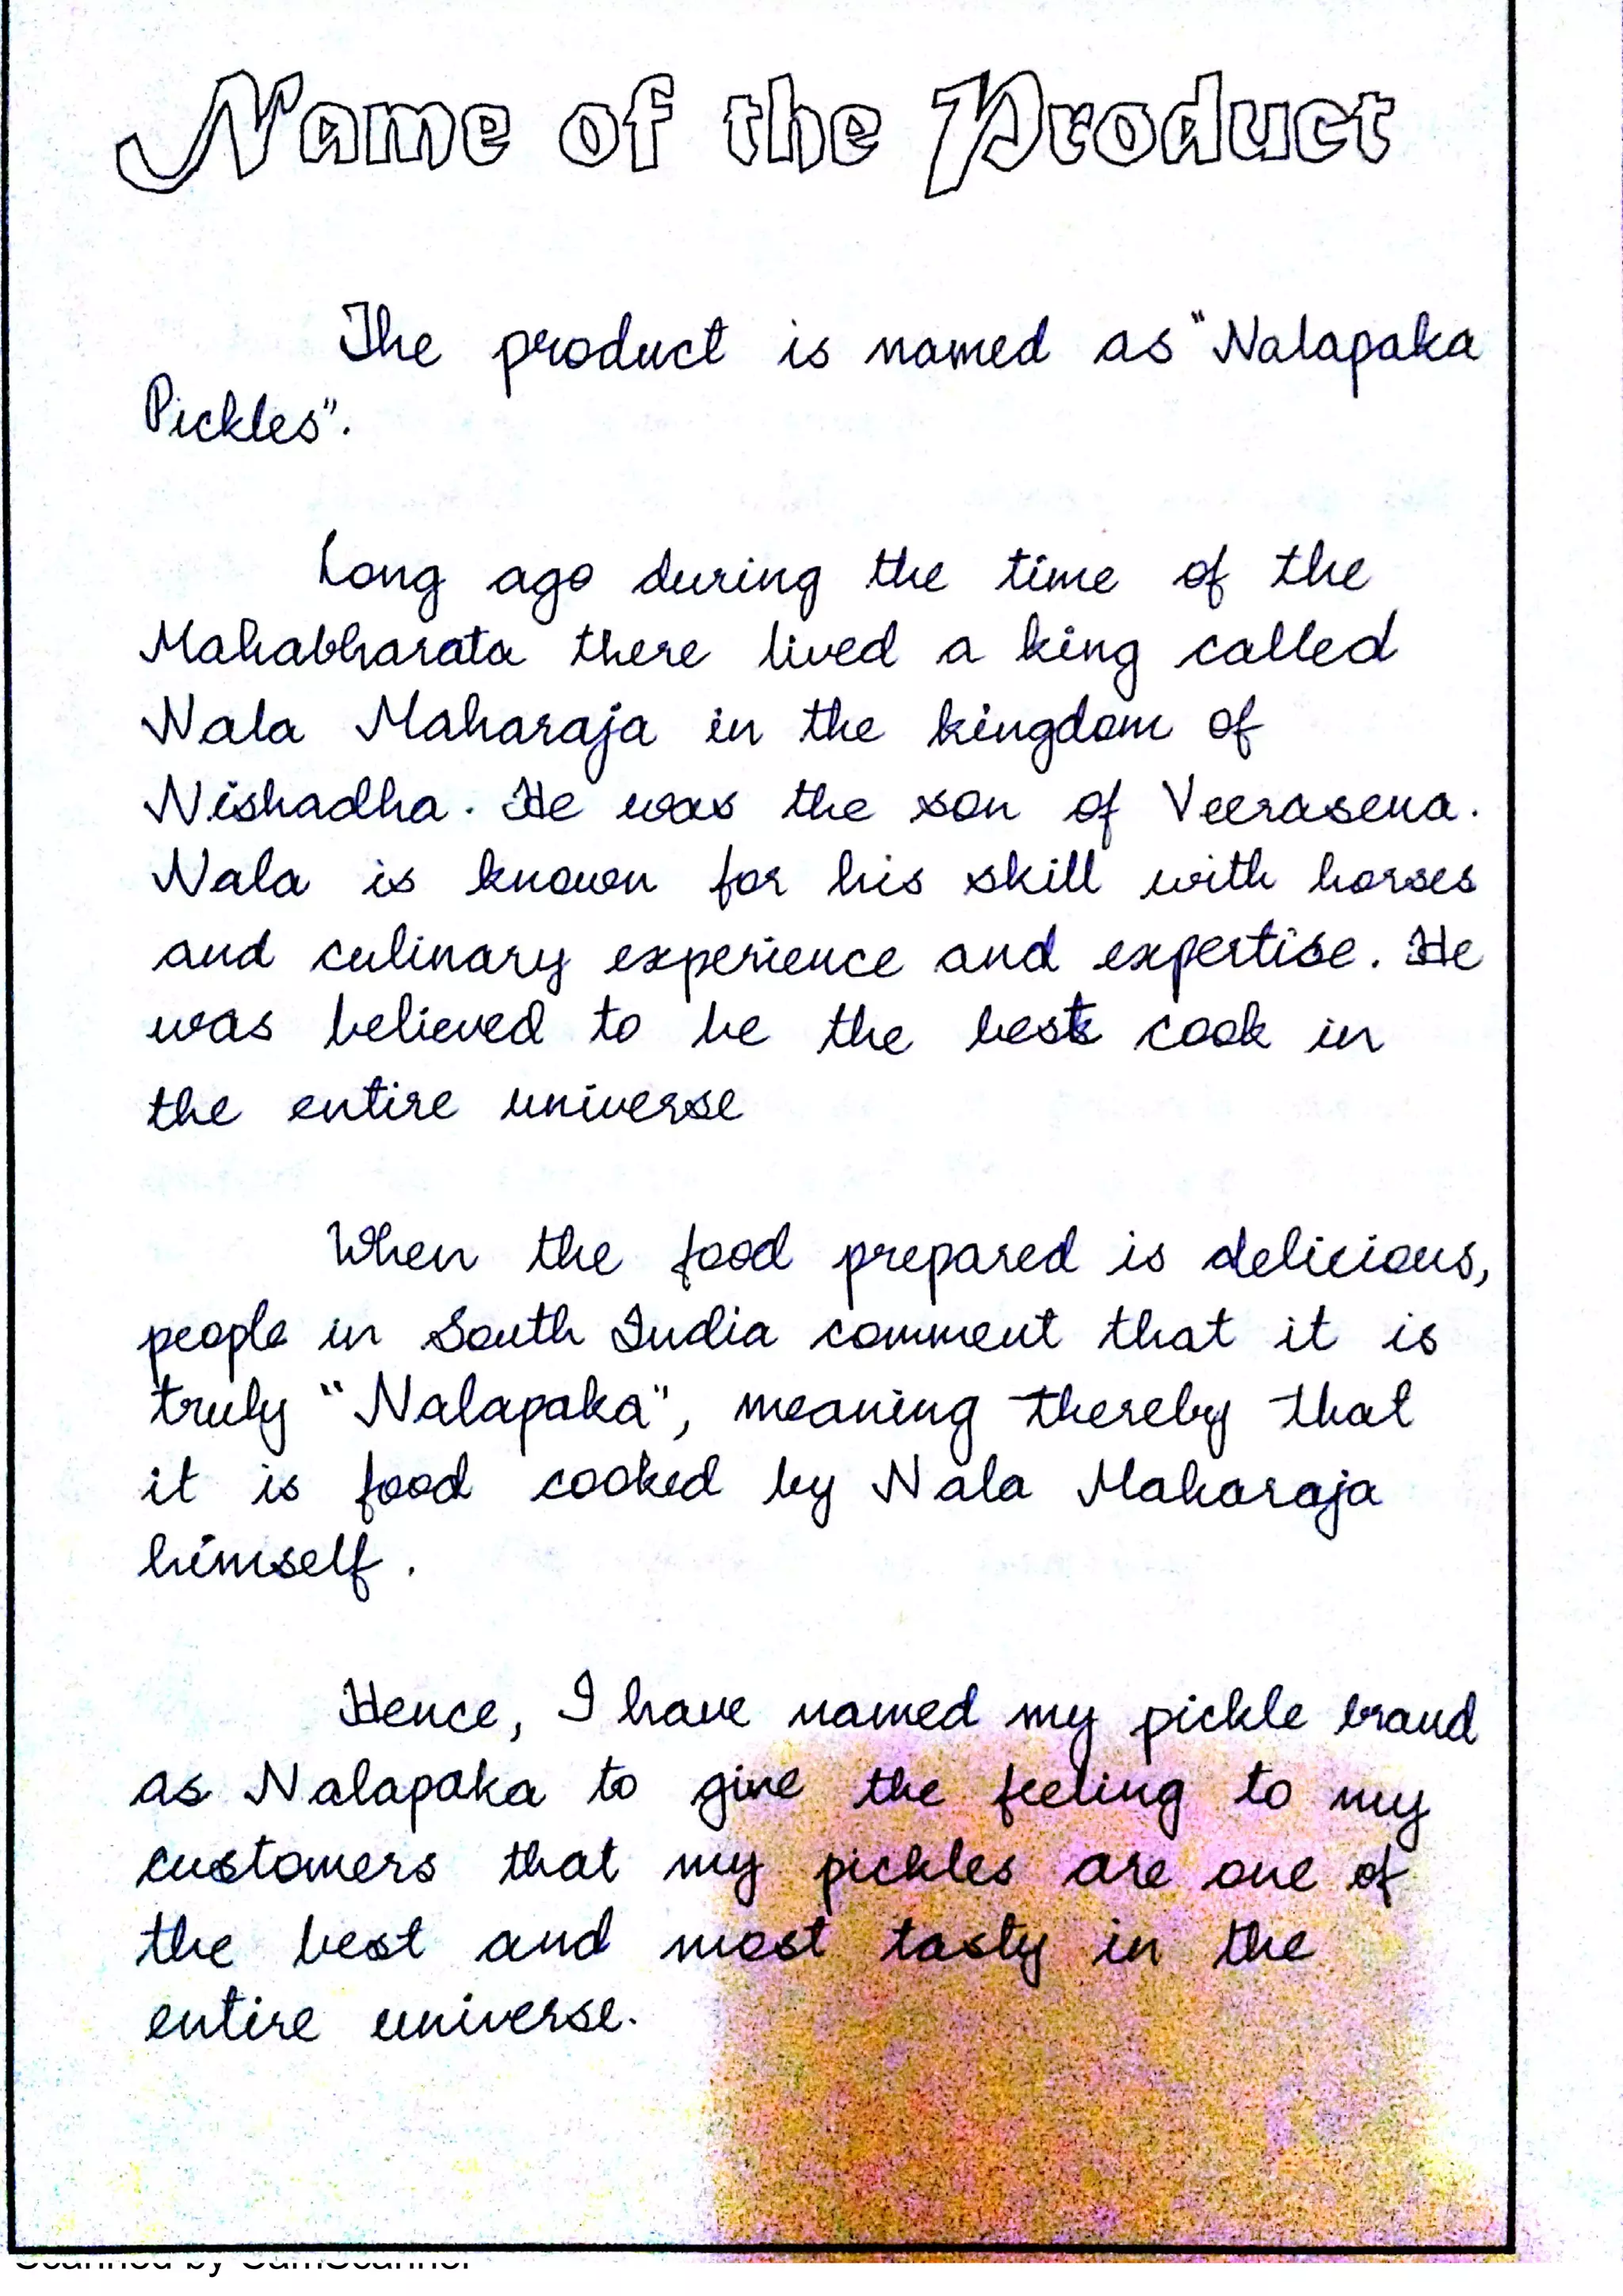 Name of the Product
The product is named as "Nalapaka
Pickles".
Long ago during the time of the
Mahabharata there lived a king called
Nala Maharaja in the kingdom of
Nishadha. He was the son of Veerasena.
Nala is known for his skill with horses
and culinary experience and expertise. He
was believed to be the best cook in
the entire universe
When the food prepared is delicious,
people in South India comment that it is
truly "Nalapaka", meaning thereby that
it is food cooked by Nala Maharaja
himself.
Hence, I have named my pickle brand
as Nalapaka to give the feeling to my
customers that my pickles are one of
the best and most tasty in the
entire universe.
Scanned by CamScanner